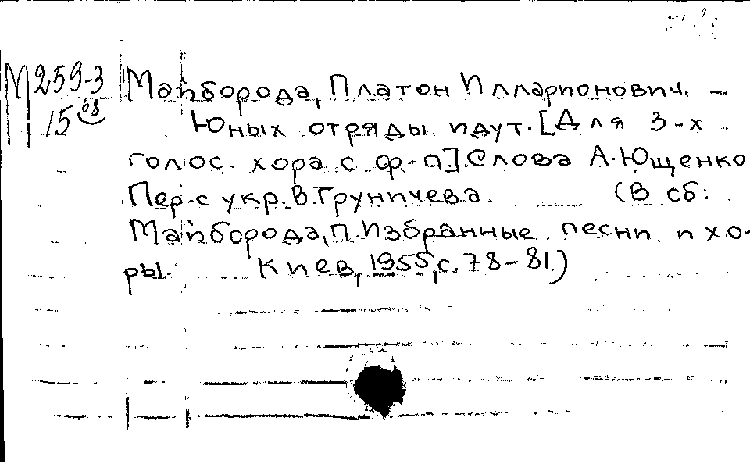 М259-3
15 об
Майборода, Платон Илларионович. –
Юных отряды идут. [Для 3-х
голос. хора с ф-п] Слова А. Ющенко
Пер. с укр. В. Груничева. (В сб.:
Майборода, П. Избранные песни и хо-
ры. Киев, 1955, с. 78-81.)